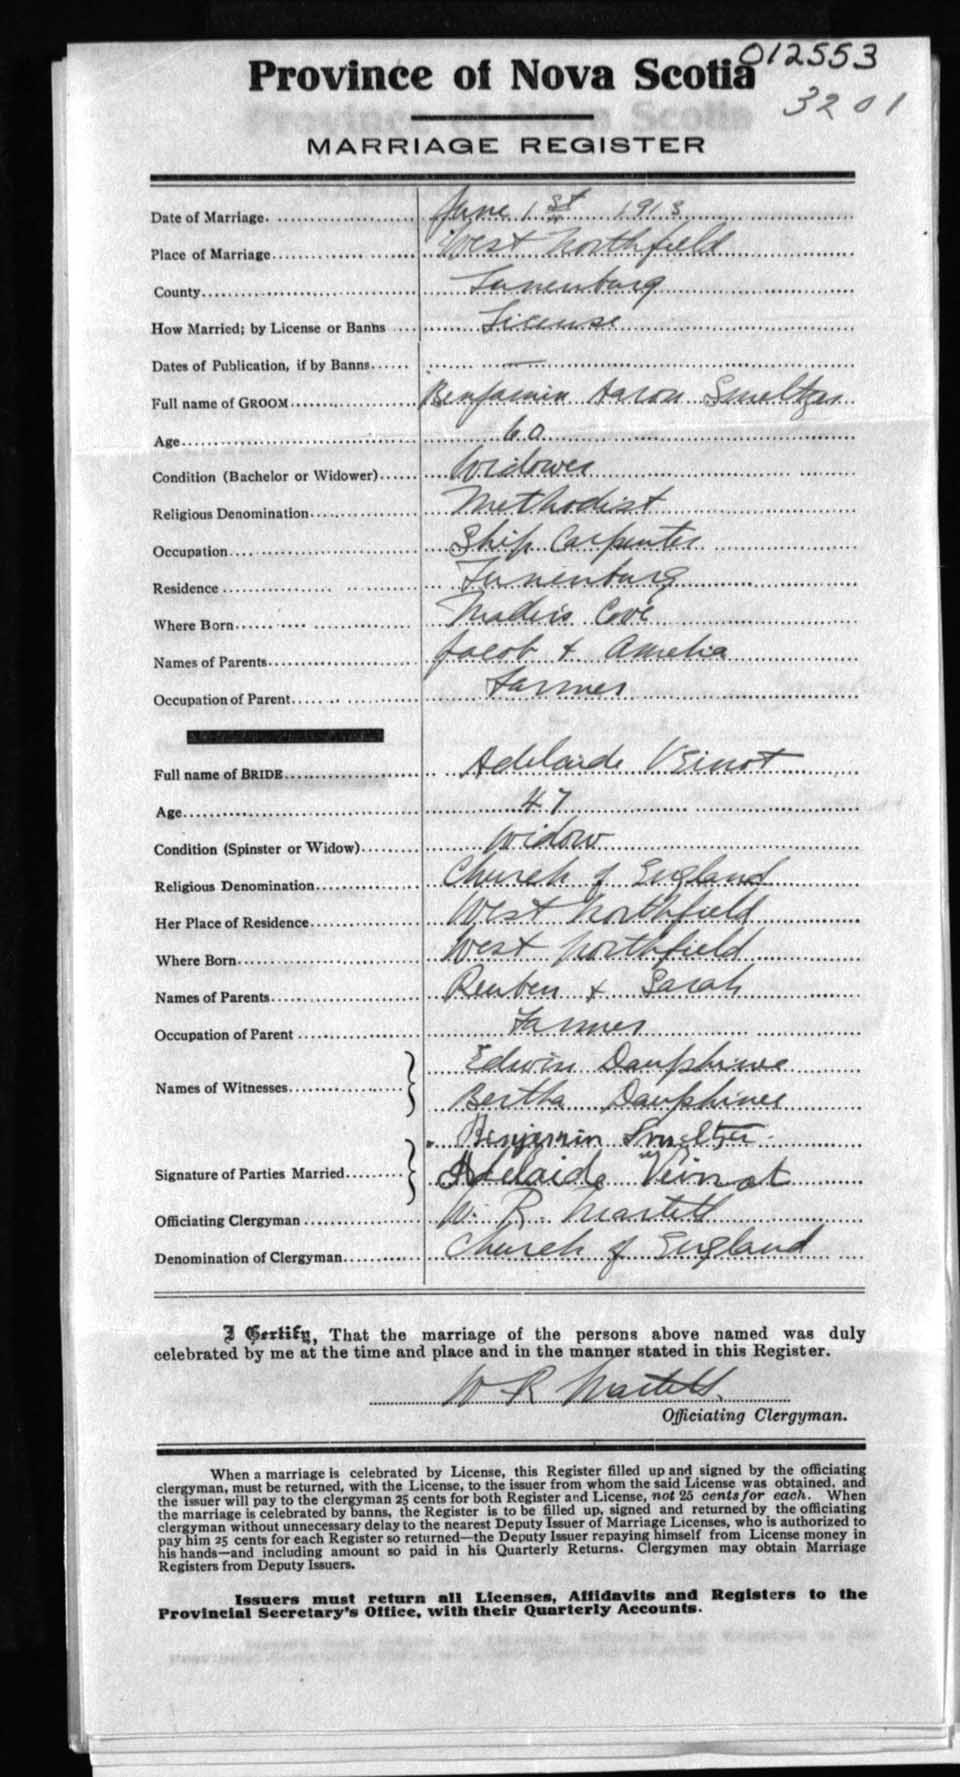 012553
Province of Nova Scotia
3201
MARRIAGE REGISTER
Date of Marriage. June 1st 1913
Place of Marriage West Northfield
County Lunenburg
How Married; by License or Banns License
Dates of Publication, if by Banns —
Full name of GROOM Benjamin Aaron Smeltzer
Age 60
Condition (Bachelor or Widower) Widower
Religious Denomination Methodist
Occupation Ship Carpenter
Residence Lunenburg
Where Born Maders Cove
Names of Parents Jacob + Amelia
Occupation of Parent Farmer
Full name of BRIDE Adelaide Veinot
Age 47
Condition (Spinster or Widow) Widow
Religious Denomination Church of England
Her Place of Residence West Northfield
Where Born West Northfield
Names of Parents Reuben + Sarah
Occupation of Parent Farmer
Edwin Dauphinee
Names of Witnesses Bertha Dauphinee
Benjamin Smeltzer
Signature of Parties Married Adelaide Veinot
Officiating Clergyman W. R. Martell
Denomination of Clergyman Church of England
I Certify, That the marriage of the persons above named was duly
celebrated by me at the time and place and in the manner stated in this Register.
W R Martell
Officiating Clergyman.
When a marriage is celebrated by License, this Register filled up and signed by the officiating
clergyman, must be returned, with the License, to the issuer from whom the said License was obtained, and
the issuer will pay to the clergyman 25 cents for both Register and License, not 25 cents for each. When
the marriage is celebrated by banns, the Register is to be filled up, signed and returned by the officiating
clergyman without unnecessary delay to the nearest Deputy Issuer of Marriage Licenses, who is authorized to
pay him 25 cents for each Register so returned—the Deputy Issuer repaying himself from License money in
his hands—and including amount so paid in his Quarterly Returns. Clergymen may obtain Marriage
Registers from Deputy Issuers.
Issuers must return all Licenses, Affidavits and Registers to the
Provincial Secretary's Office, with their Quarterly Accounts.